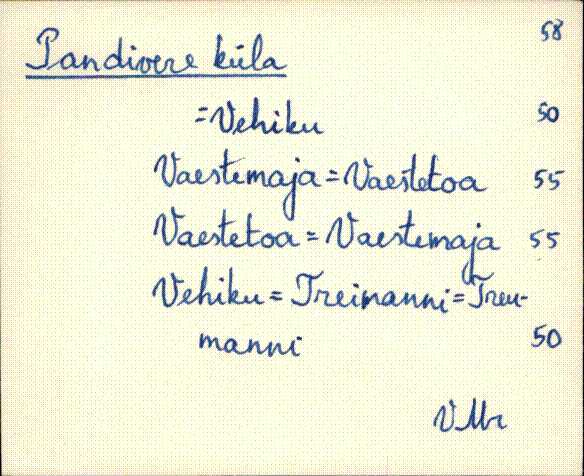 58
Pandivere küla
=Vehiku 50
Vaestemaja=Vaestetoa 55
Vaestetoa=Vaestemaja 55
Vehiku=Treimanni=Treu-
manni 50
VMr